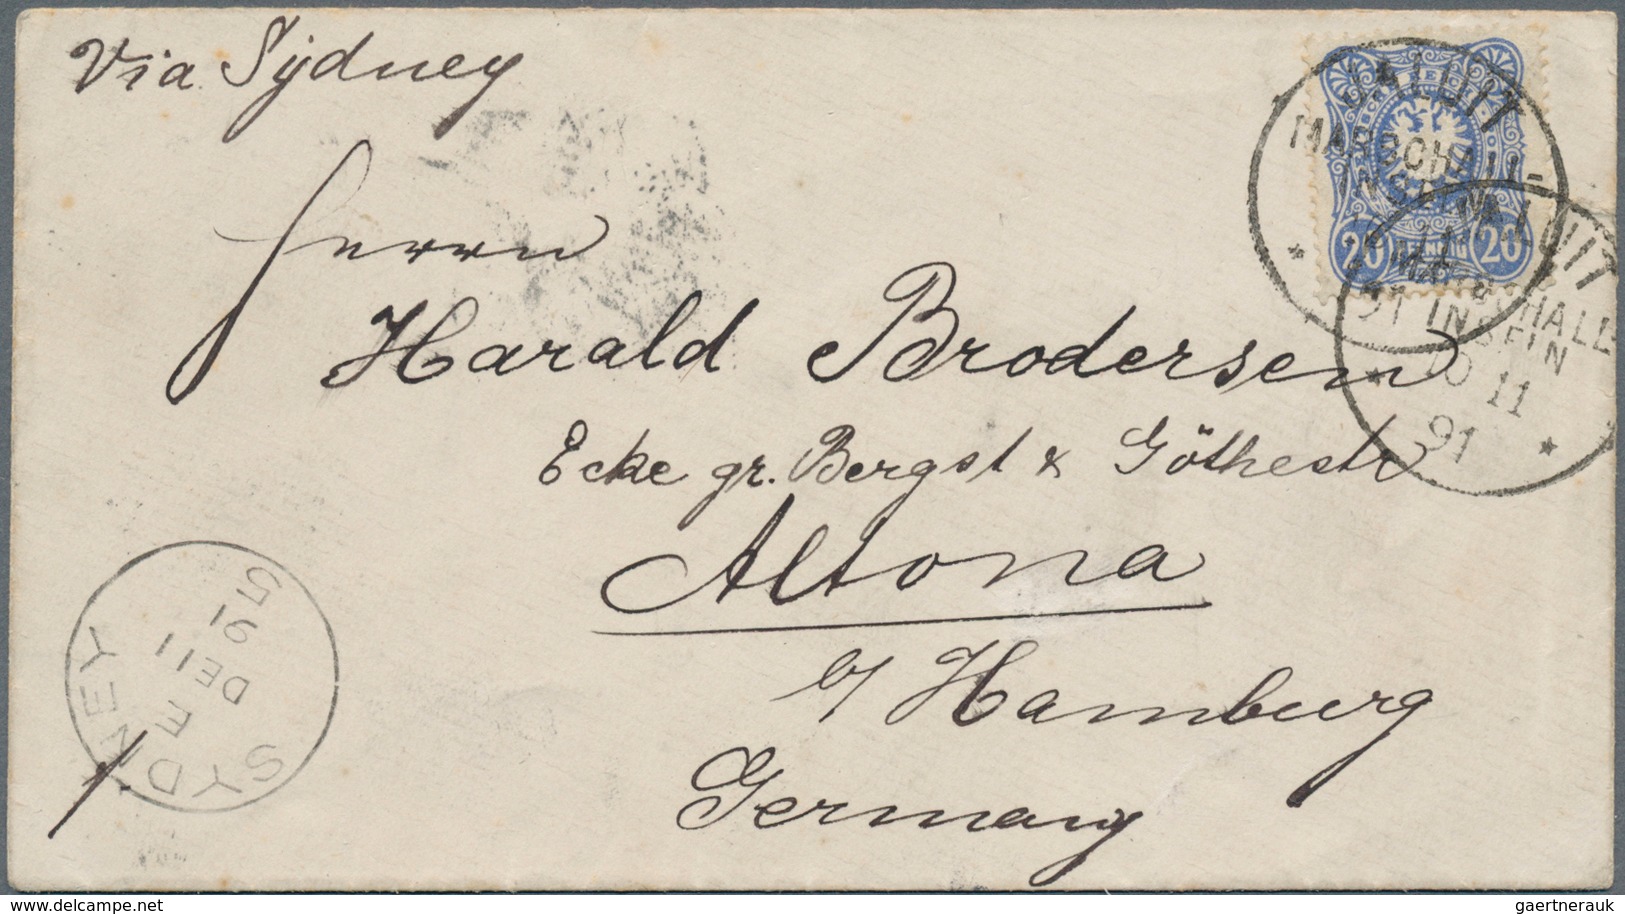 Via Sydney
Herrn
Harald Brodersen
Ecke gr. Bergst & Göthestr
Altona
b/ Hamburg
Germany
JALUIT
MARSCHALL-
INSELN
20 PFENNIG 20
JALUIT
MARSCHALL
INSELN
10 11
91
SYDNEY
E
DE 11
91
5
1.
www.delcampe.net
gaertnerauk